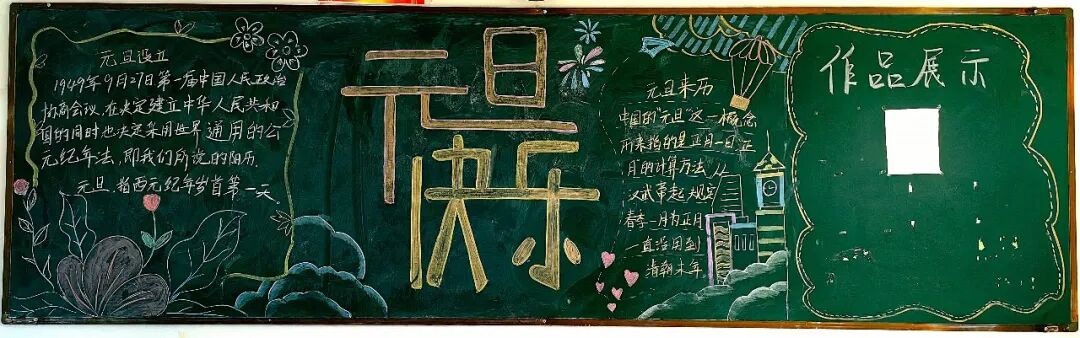 元旦设立
1949年9月27日第一届中国人民政治
协商会议，在决定建立中华人民共和
国的同时也决定采用世界通用的公
元纪年法，即我们所说的阳历.
元旦，指西元纪年岁首第一天.
元旦
快乐
元旦来历
中国的"元旦"这一概念
历来指的是正月一日正
月的计算方法，从
汉武帝起规定
春季一月为正月
一直沿用到
清朝末年
作品展示